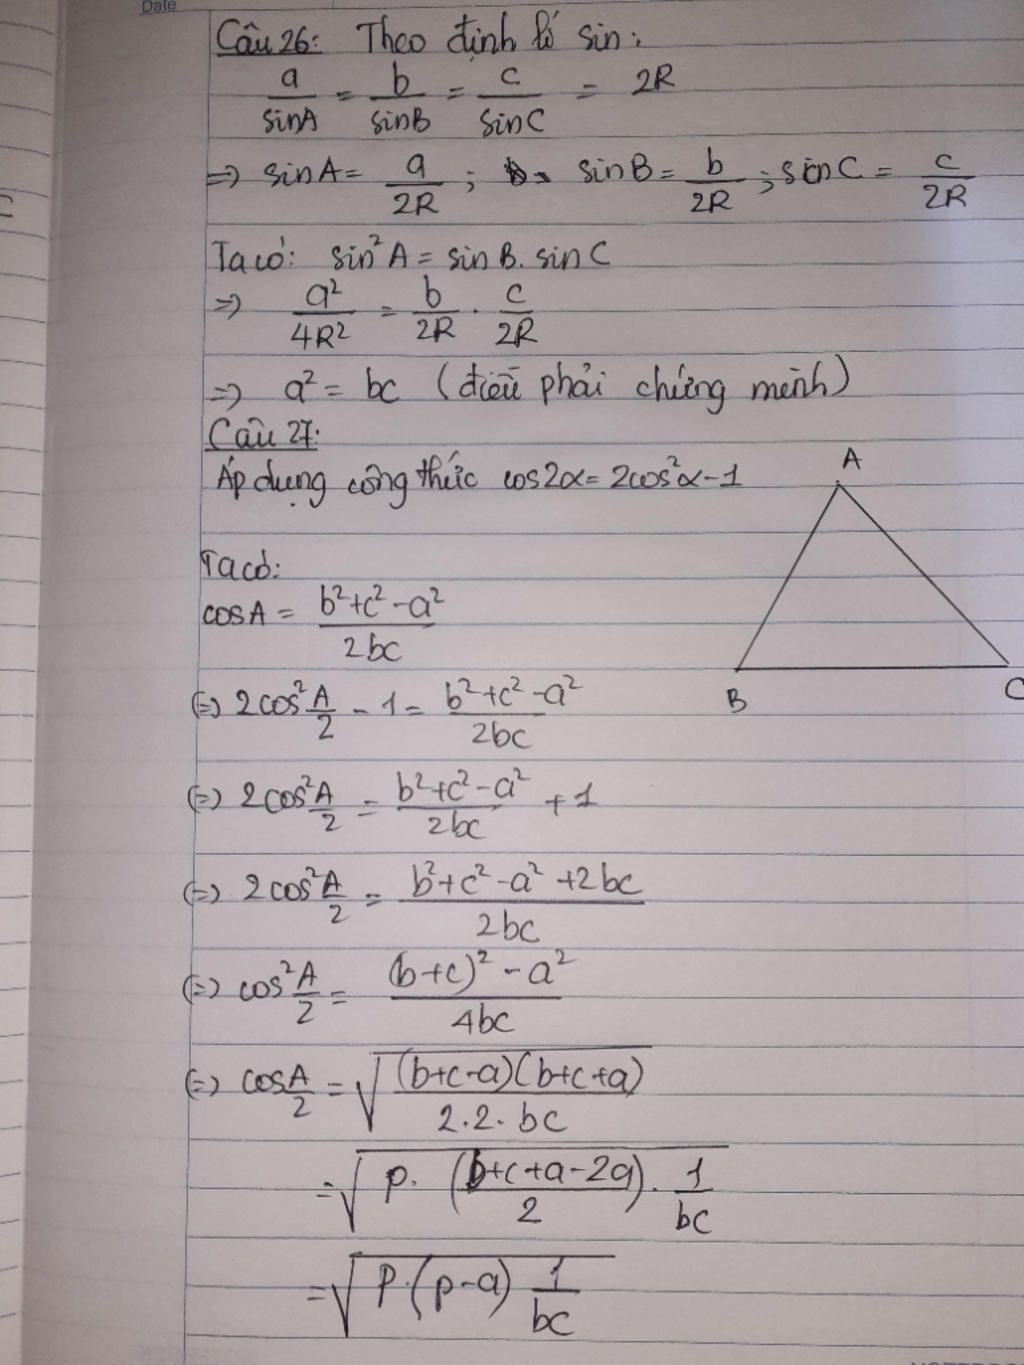 Date
Câu 26: Theo định lí sin:
a/sinA = b/sinB = c/sinC = 2R
=> sinA = a/2R ; sinB = b/2R ; sinC = c/2R
Ta có: sin²A = sinB. sinC
=> a²/4R² = b/2R . c/2R
=> a² = bc (điều phải chứng minh)
Câu 27:
Áp dụng công thức cos2α = 2cos²α - 1
A
Ta có:
cosA = (b²+c²-a²)/2bc
B C
(=) 2cos²A/2 - 1 = (b²+c²-a²)/2bc
(=) 2cos²A/2 = (b²+c²-a²)/2bc + 1
(=) 2cos²A/2 = (b²+c²-a²+2bc)/2bc
(=) cos²A/2 = ((b+c)²-a²)/4bc
(=) cosA/2 = √((b+c-a)(b+c+a)/2.2.bc)
= √(p. (b+c+a-2a)/2 . 1/bc)
= √(p.(p-a) 1/bc)